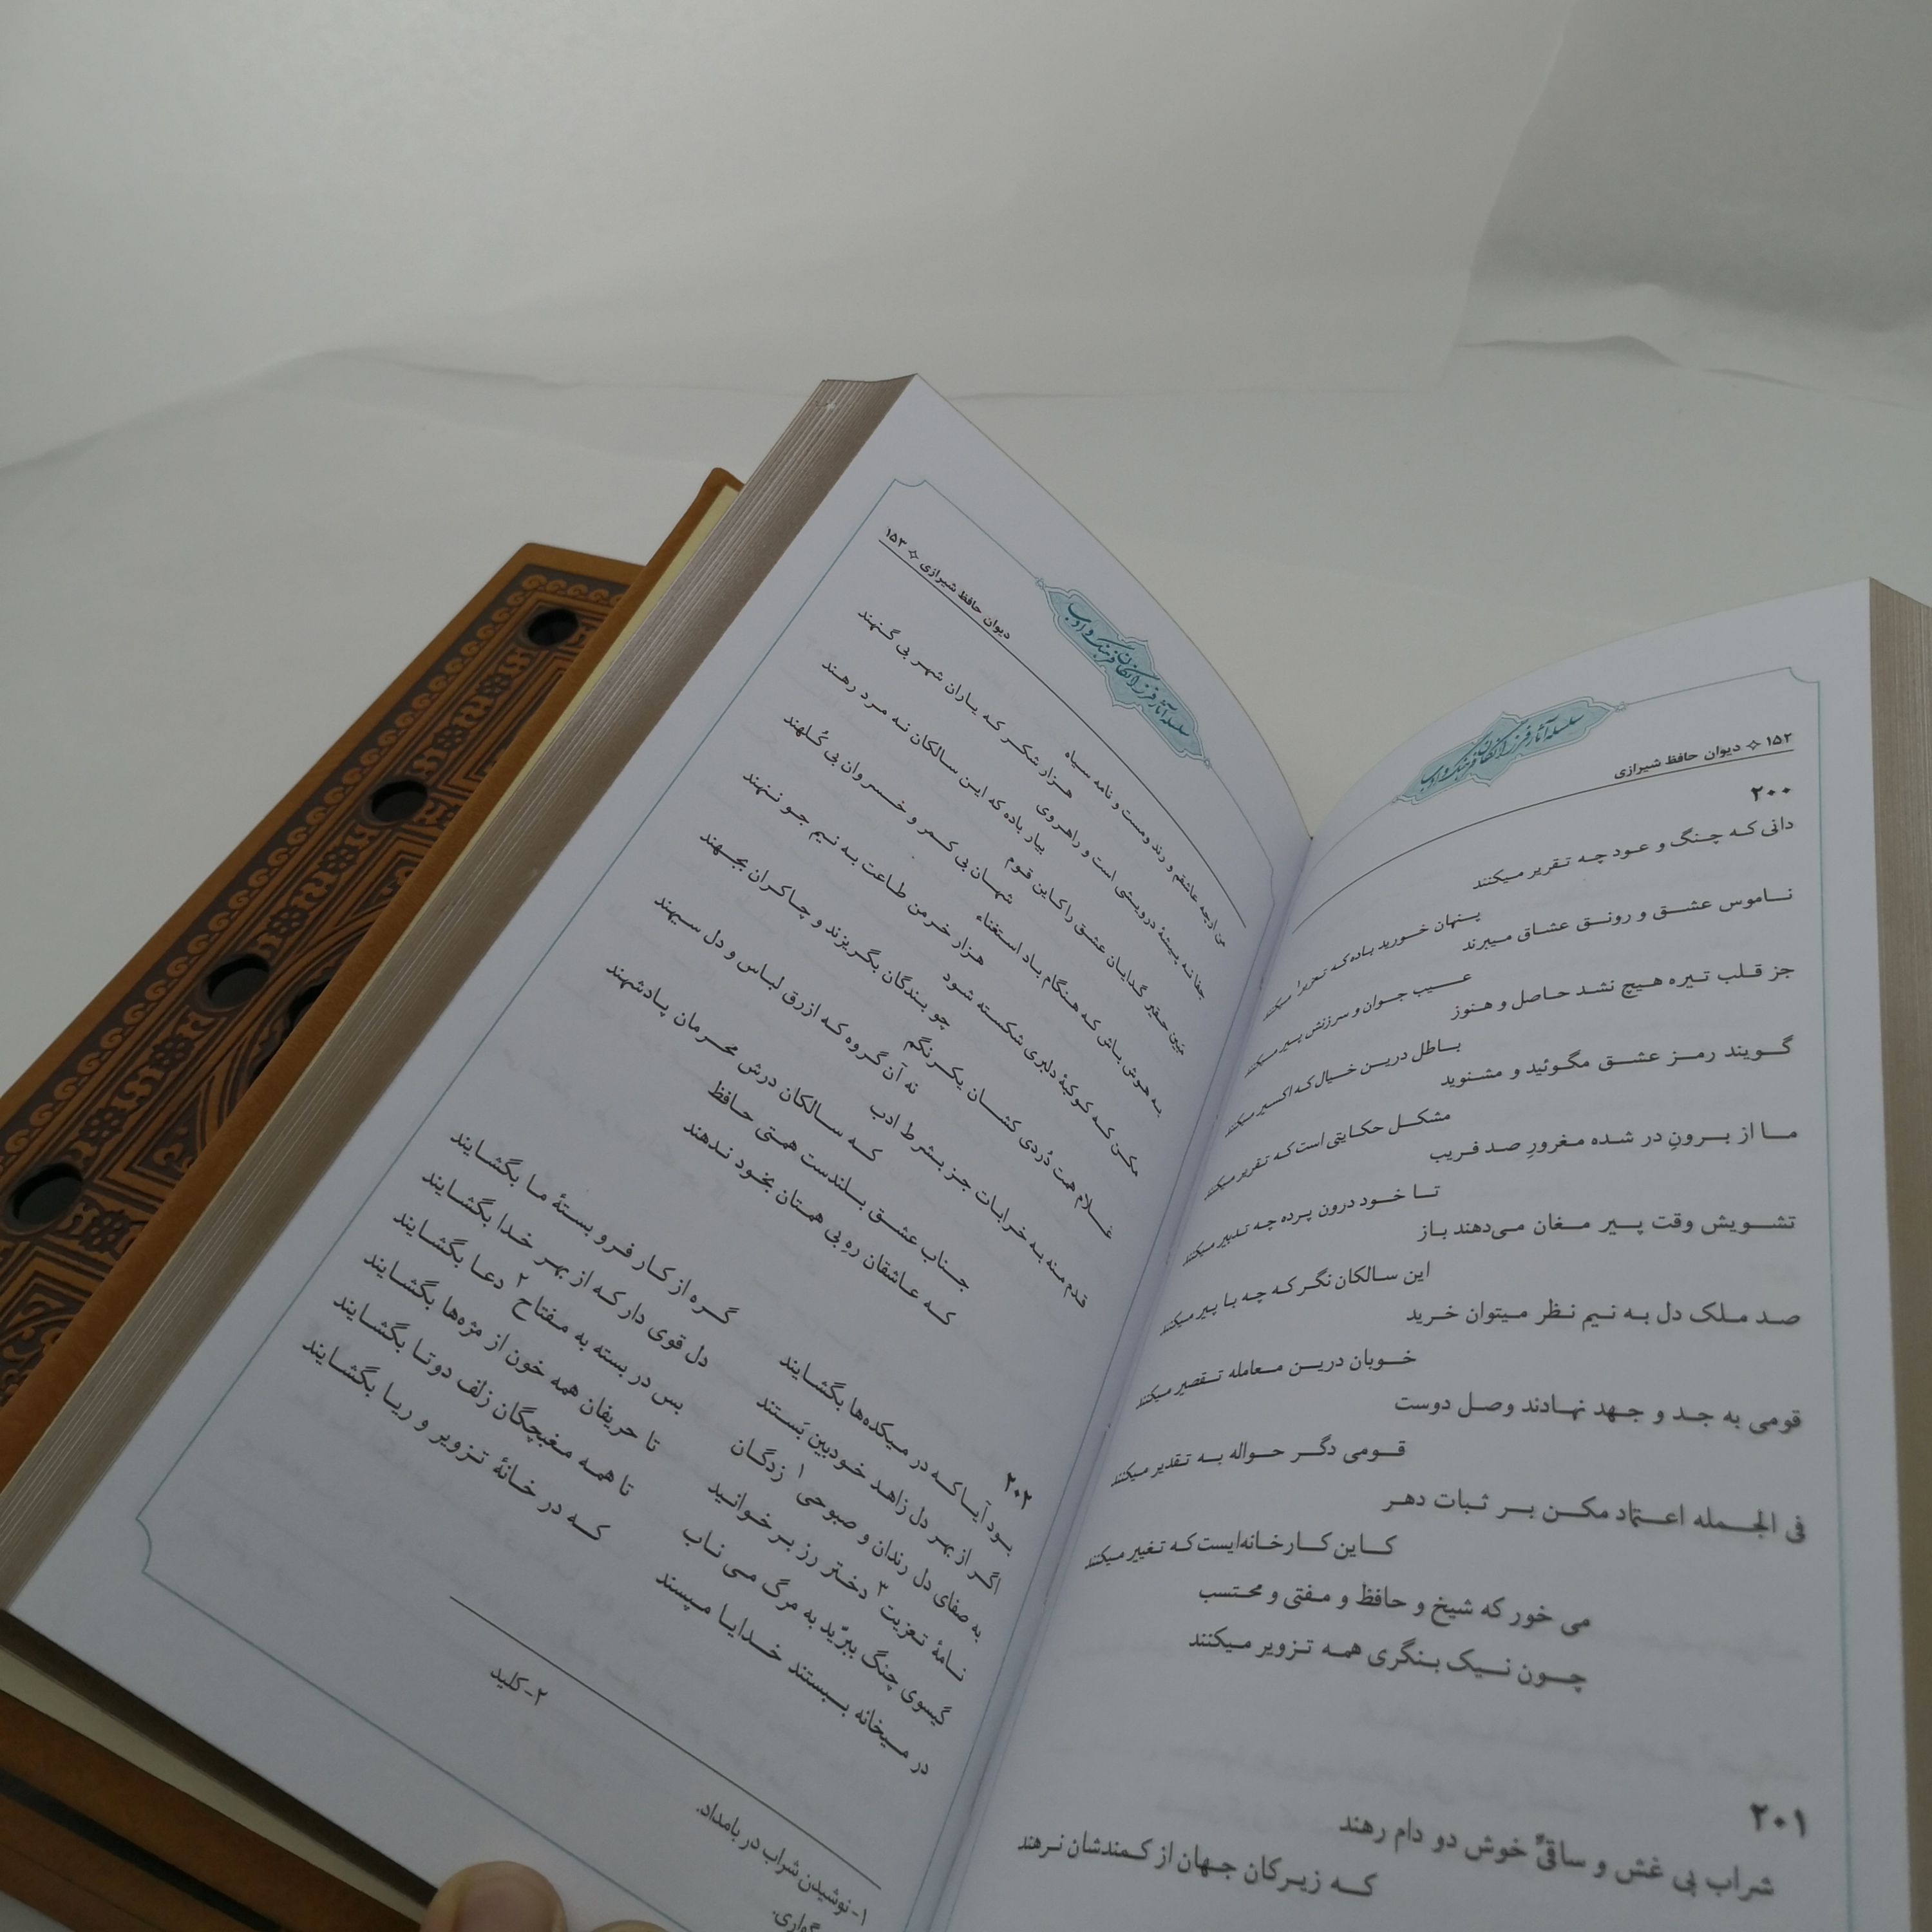 سلسله آثار فرزانگان فرهنگ و ادب
۱۵۲ ✧ دیوان حافظ شیرازی
۲۰۰
دانی که چنگ و عود چه تقریر میکنند
پنهان خورید باده که تعزیر میکنند
ناموس عشق و رونق عشاق میبرند
عیب جوان و سرزنش پیر میکنند
جز قلب تیره هیچ نشد حاصل و هنوز
باطل درین خیال که اکسیر میکنند
گویند رمز عشق مگوئید و مشنوید
مشکل حکایتی است که تقریر میکنند
ما از برونِ در شده مغرورِ صد فریب
تا خود درون پرده چه تدبیر میکنند
تشویش وقت پیر مغان می‌دهند باز
این سالکان نگر که چه با پیر میکنند
صد ملک دل به نیم نظر میتوان خرید
خوبان درین معامله تقصیر میکنند
قومی به جد و جهد نهادند وصل دوست
قومی دگر حواله به تقدیر میکنند
فی الجمله اعتماد مکن بر ثبات دهر
کاین کارخانه‌ایست که تغییر میکنند
می خور که شیخ و حافظ و مفتی و محتسب
چون نیک بنگری همه تزویر میکنند
۲۰۱
شراب بی غش و ساقیِّ خوش دو دام رهند
که زیرکان جهان از کمندشان نرهند
سلسله آثار فرزانگان فرهنگ و ادب
دیوان حافظ شیرازی ✧ ۱۵۳
من ارچه عاشقم و رند ومست و نامه سیاه
هزار شکر که یاران شهر بی گنهند
جفا نه پیشهٔ درویشی است و راهروی
بیار باده که این سالکان نه مرد رهند
مبین حقیر گدایان عشق را کاین قوم
شهان بی کمر و خسروان بی کُلهند
به هوش باش که هنگام باد استغناء
هزار خرمن طاعت به نیم جو ننهند
مکن که کوکبهٔ دلبری شکسته شود
چو بندگان بگریزند و چاکران بجهند
غلام همت دُردی کشان یکرنگم
نه آن گروه که ازرق لباس و دل سیهند
قدم منه به خرابات جز بشرط ادب
که سالکان درش محُرمان پادشهند
جناب عشق بلندست همتی حافظ
که عاشقان رهِ بی همتان بخود ندهند
۲۰۲
بود آیا که در میکده‌ها بگشایند
گره از کار فرو بستهٔ ما بگشایند
اگر از بهر دل زاهد خودبین بَستند
دل قوی دار که از بهر خدا بگشایند
به صفای دل رندان و صبوحی ۱ زدگان
بس در بسته به مفتاح ۲ دعا بگشایند
نامهٔ تعزیت ۳ دختر رز بر خوانید
تا حریفان همه خون از مژه‌ها بگشایند
گیسوی چنگ ببُرّید به مرگ می ناب
تا همه مغبچگان زلف دوتا بگشایند
در میخانه ببستند خدایا مپسند
که در خانهٔ تزویر و ریا بگشایند
۱- نوشیدن شراب در بامداد.
۲- کلید